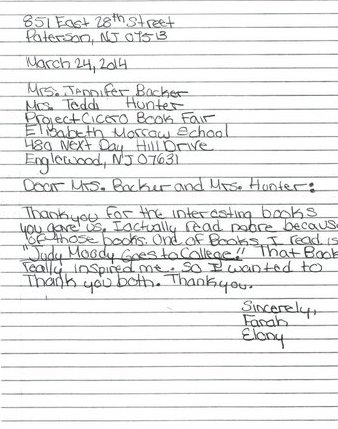 851 East 28th Street
Paterson, NJ 07513
March 24, 2014
Mrs. Jennifer Backer
Mrs. Teddi Hunter
Project Cicero Book Fair
Elisabeth Morrow School
489 Next Day Hill Drive
Englewood, NJ 07631
Dear Mrs. Backer and Mrs. Hunter:
Thank you for the interesting books
you gave us. I actually read more because
of those books. One of Books I read is
"Judy Moody Goes to College." That Book
really inspired me. So I wanted to
Thank you both. Thank you.
Sincerely,
Farah
Elony